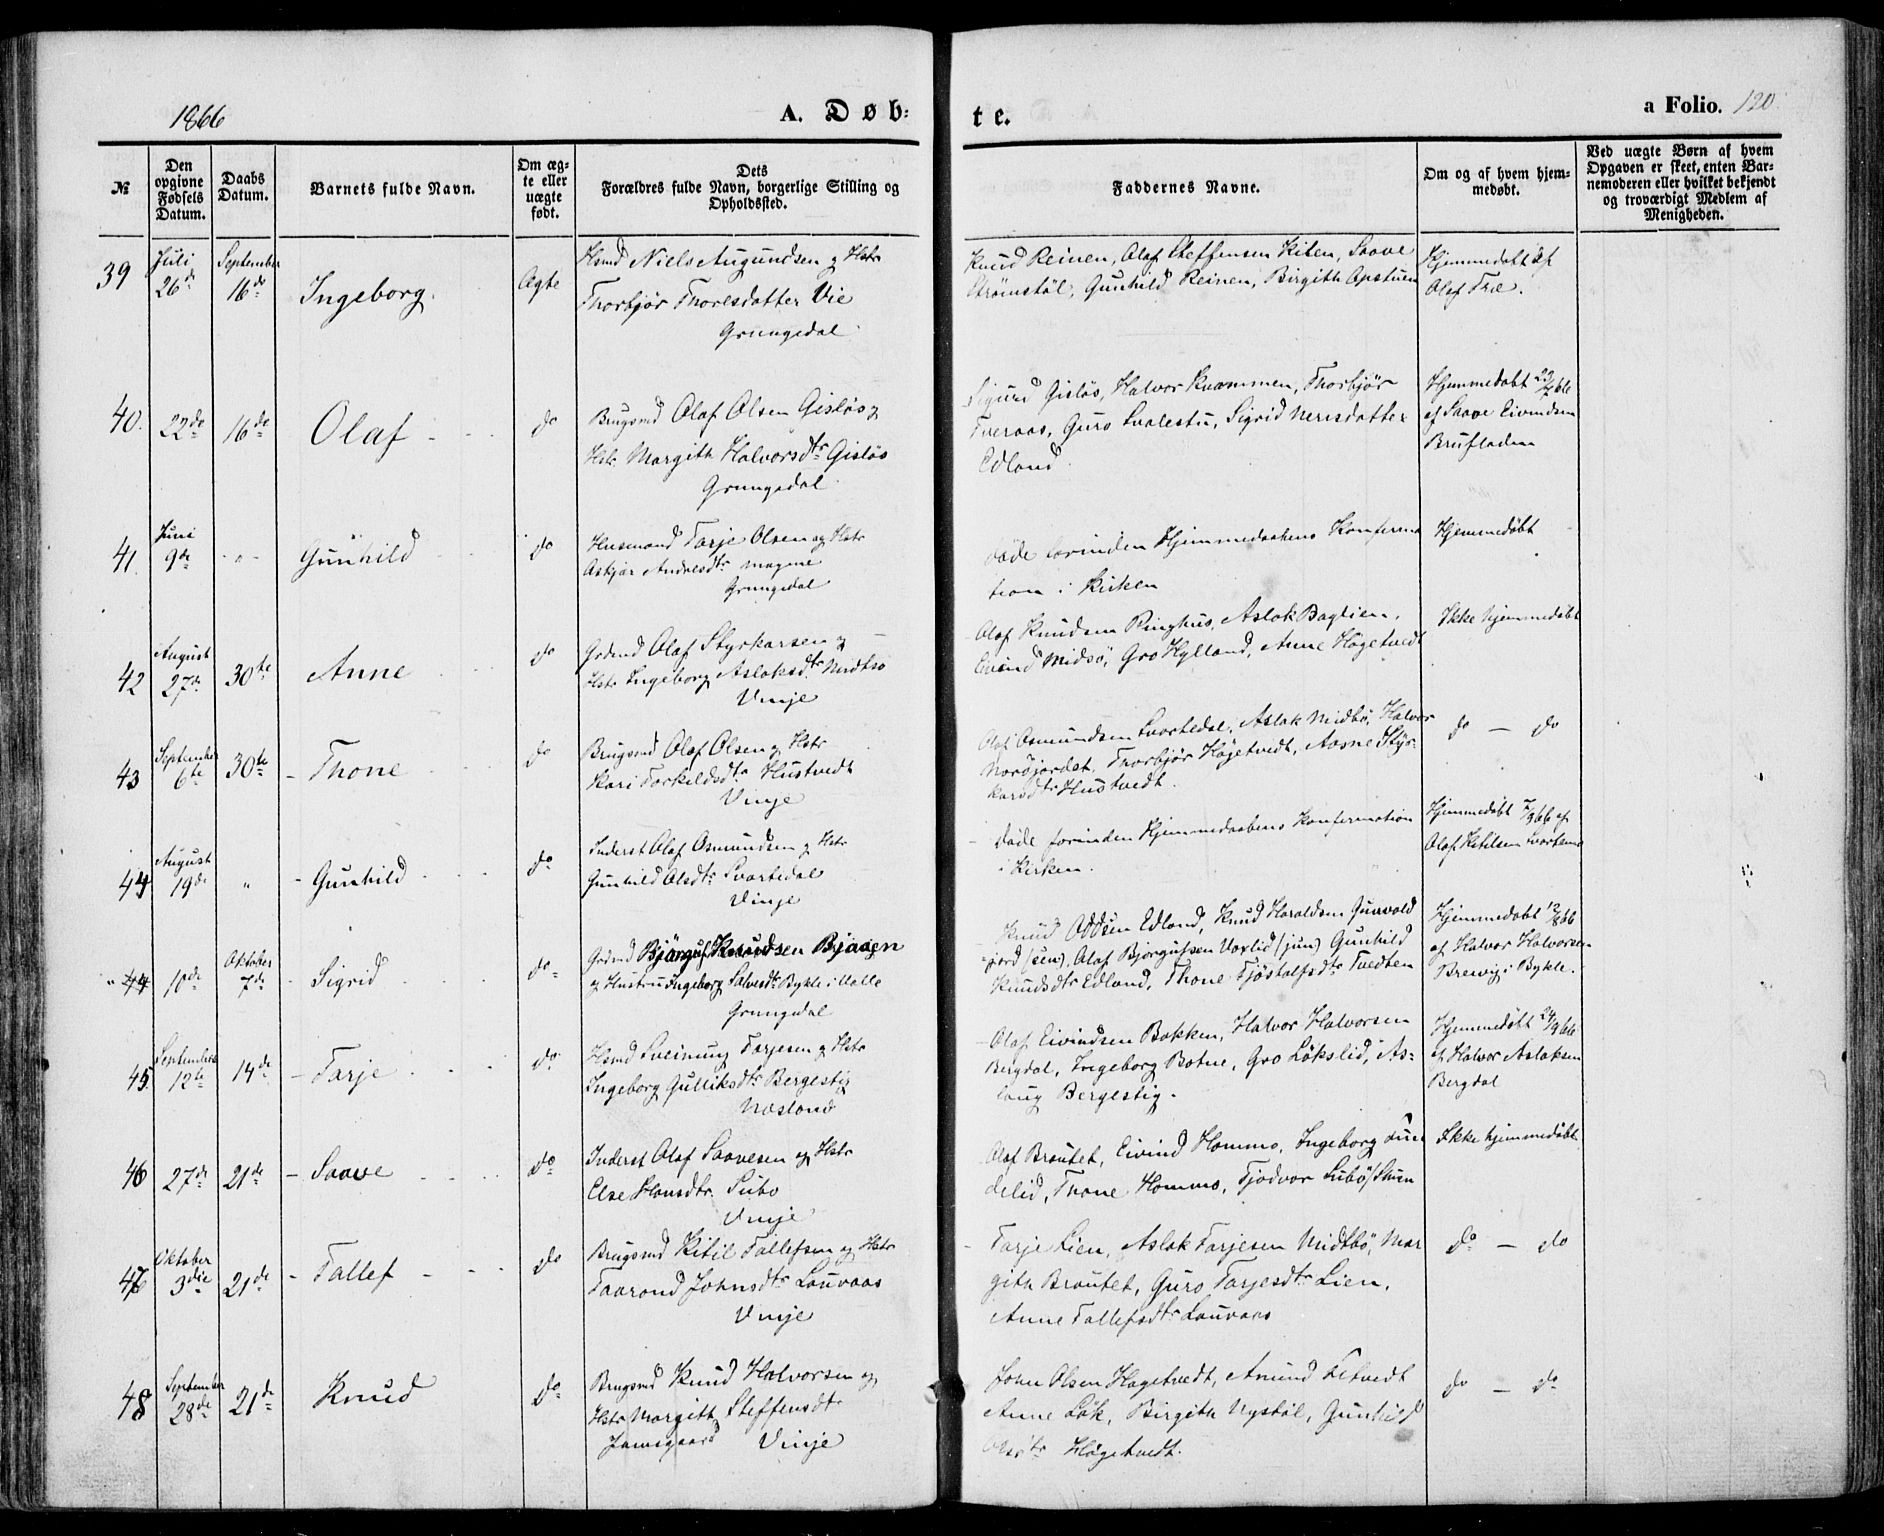 1866
A. Døb:
te.
a Folio. 120.
№
Den opgivne Fødsels Datum.
Daabs Datum.
Barnets fulde Navn.
Om ægte eller uægte født.
Dets Forældres fulde Navn, borgerlige Stilling og Opholdssted.
Faddernes Navne.
Om og af hvem hjemmedøbt.
Ved uægte Børn af hvem Opgaven er skeet, enten Barnemoderen eller hvilket bekjendt og troværdigt Medlem af Menigheden.
39
Juli 26de
September 16de
Ingeborg
Ægte
Hsmd Niels Augundsen og Hstr
Thorbjør Thoresdatter Vie
Grungedal
Knud Reinen, Olaf Steffensen Kilen, Saave
Strømstøl, Gunhild Reinen, Birgith Opstuen
Hjemmedøbt af
Olaf Træ.
40.
22de
16de
Olaf
do
Brugsmd Olaf Olsen Gisløs og
Hstr Margith Halvorsdtr Gisløs
Grungedal
Sigurd Gisløs, Halvor Kvammen, Thorbjør
Tveraas, Guro Svalestu, Sigrid Nerisdatter
Edland
Hjemmedøbt 22/7 66
af Saave Eivindsen
Brufladen
41.
Juni 9de
"
Gunhild
do
Husmand Tarje Olsen og Hstr
Askjær Andresdtr magne
Grungedal
døde forinden Hjemmedaabens Konferma
tion i Kirken
Hjemmedøbt
42
August 27de
30te
Anne
do
Grdmd Olaf Styrkarsen og
Hstr Ingeborg Aslaksdtr Midtbø
Vinje
Olaf Knudsen Ringhus, Aslak Baglien,
Eivind Midbø, Gro Hylland, Anne Høgetvedt
Ikke hjemmedøbt
43
September 6te
30te
Thone
do
Brugsmd Olaf Olsen og Hstr
Kari Torkildsdtr Hustvedt
Vinje
Olaf Osmundsen Svortedal, Aslak Midbø, Halvor
Norøjordet, Thorbjør Høgetvedt, Aasne Styr-
karsdtr Hustvedt.
do — do
44
August 19de
"
Gunhild
do
Inderst Olaf Osmundsen og Hstr
Gunhild Olsdtr Svortedal
Vinje
Døde forinden Hjemmedaabens Konfermation
i Kirken.
Hjemmedøbt 7/9 66 af
Olaf Ketilsen
44
10de
Oktober 7de
Sigrid
do
Grdmd Bjørguf Knudsen Bjaaen
og Hustru Ingeborg Salvesdtr Bykle i Valle
Grungedal
Knud Oddsen Edland, Knud Haraldsen Gunvald
jord (sen), Olaf Bjørgufsen Vaxlid (jun) Gunhild
Knudsdtr Edland, Thone Tjøstolfsdtr Tvedten
Hjemmedøbt 12/8 66
af Halvor Halvorsen
Breivig i Bykle.
45
September 12te
14de
Tarje
do
Hsmd Sveinung Tarjesen og Hstr
Ingeborg Gulliksdtr Bergestig
Næsland
Olaf Eivindsen Bakken, Halvor Halvorsen
Bergdal, Ingeborg Botne, Gro Løkslid, As-
laug Bergestig.
Hjemmedøbt 24/9 66
af Halvor Aslaksen
Bergdal
46
27de
21de
Saave
do
Inderst Olaf Saavesen og Hstr
Else Hansdtr Subø
Vinje
Olaf Brautet, Eivind Hommo, Ingeborg Lun
delid, Thone Hommo, Tjodvor Subø
Ikke hjemmedøbt
47
Oktober 3die
21de
Tallef
do
Brugsmd Kitil Tallefsen og Hstr
Taarand Johnsdtr Lauvaas
Vinje
Tarje Lien, Aslak Tarjesen Midtbø, Mar
gith Brautet, Guro Tarjesdtr Lien,
Anne Tallefsdtr Lauvaas
do — do
48
September 28de
21de
Knud
do
Brugsmd Knud Halvorsen og
Hstr Margith Steffensdtr
Jamsgaard Vinje
John Olsen Høgetvedt, Amund Fetvedt
Anne Løk, Birgith Nystøl, Gunhild
Olsdtr Høgetvedt.
do — do